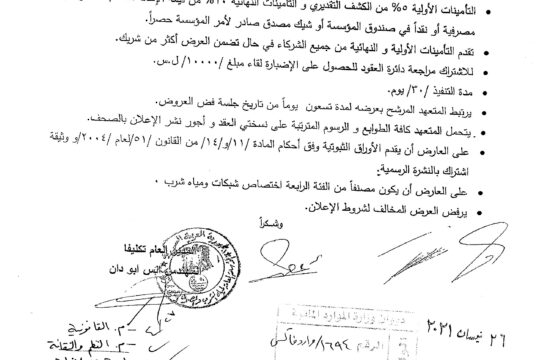 التأمينات الأولية ٥% من الكشف التقديري و التأمينات النهائية ١٠% من
مصرفية أو نقداً في صندوق المؤسسة أو شيك مصدق صادر لأمر المؤسسة حصراً.
تقدم التأمينات الأولية و النهائية من جميع الشركاء في حال تضمن العرض أكثر من شريك.
للاشتراك مراجعة دائرة العقود للحصول على الإضبارة لقاء مبلغ /١٠٠٠٠/ ل.س.
مدة التنفيذ /٣٠/ يوم.
يرتبط المتعهد المرشح بعرضه لمدة تسعون يوماً من تاريخ جلسة فض العروض.
يتحمل المتعهد كافة الطوابع و الرسوم المترتبة على نسختي العقد و أجور نشر الإعلان بالصحف.
على العارض أن يقدم الأوراق الثبوتية وفق أحكام المادة /١١/و/١٤/ من القانون /٥١/لعام /٢٠٠٤/و وثيقة
اشتراك بالنشرة الرسمية.
على العارض أن يكون مصنفاً من الفئة الرابعة اختصاص شبكات ومياه شرب .
يرفض العرض المخالف لشروط الإعلان.
وشكراً
المدير العام تكليفا
المهندس انس ابو دان
٢٦ نيسان ٢٠٢١
ديوان وزارة الموارد المائية
الرقم ١٦٩٤/وارد فاكس
م. القانونية